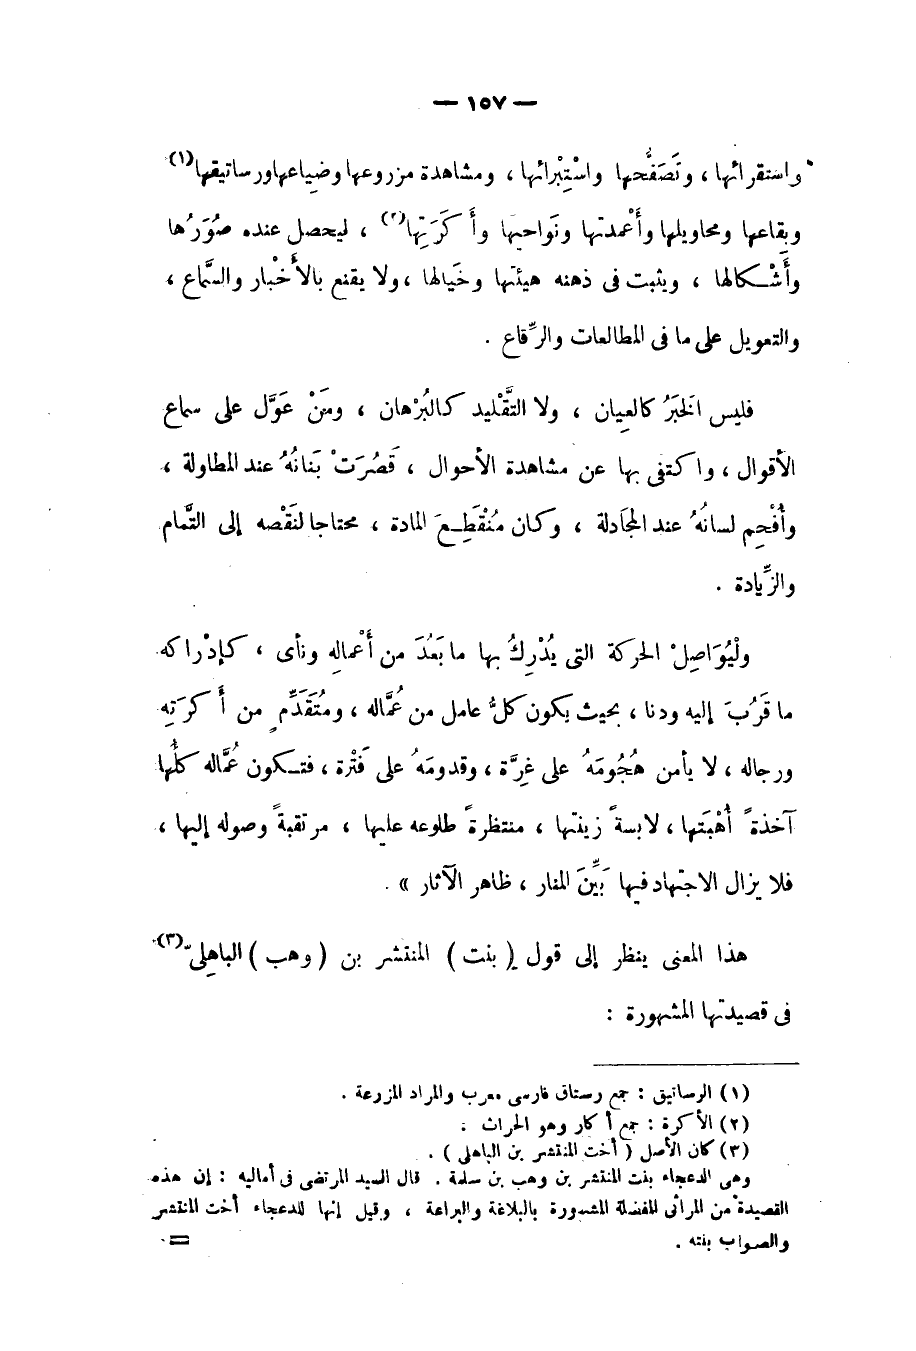 — ١٥٧ —
واستقرائها ، وتَصَفُّحها واسْتِبْرائها ، ومشاهدة مزروعها وضياعها ورساتيقها(١)
وبِقاعها ومحاويلها وأَعْمدتها ونَواحيها وأَكَرَتِها(٢) ، ليحصل عنده صُوَرُها
وأَشْكالها ، ويثبت فى ذهنه هيئتها وخَيالها ، ولا يقنع بالأَخْبار والسَّماع ،
والتعويل على ما فى المطالعات والرِّقاع .
فليس الخَبَرُ كالعِيان ، ولا التَّقْليد كالبُرْهان ، ومَنْ عَوَّل على سماع
الأقوال ، واكتفى بها عن مشاهدة الأحوال ، قَصُرَتْ بَنانُهُ عند المطاولة ،
وأُفْحِم لسانُهُ عند المجَادلة ، وكان مُنْقَطِعَ المادة ، محتاجا لنَقْصه إلى التَّمام
والزِّيادة .
ولْيُوَاصِلْ الحركة التى يُدْرِكُ بها ما بَعُدَ من أَعْمالِه ونأى ، كإدْراكه
ما قَرُبَ إليه ودنا ، بحيث يكون كلُّ عامل من عُمَّاله ، ومُتَقَدِّمٍ من أَكَرَتِه
ورجاله ، لا يأمن هُجُومَهُ على غِرَّة ، وقدومَهُ على فَتْرة ، فتكون عُمَّاله كلُّها
آخذةً أُهْبَتها ، لابسةً زينتها ، منتظرةً طلوعه عليها ، مرتقبةً وصوله إليها ،
فلا يزال الاجتهاد فيها بَيِّنَ المنار ، ظاهر الآثار » .
هذا المعنى ينظر إلى قول ( بنت ) المنتشر بن ( وهب ) الباهِلىّ(٣)
فى قصيدتها المشهورة :
(١) الرساتيق : جمع رستاق فارسى معرب والمراد المزرعة .
(٢) الأكرة : جمع أكار وهو الحراث .
(٣) كان الأصل ( أخت المنتشر بن الباهلى ) .
وهى الدعجاء بنت المنتشر بن وهب بن سلمة . قال السيد المرتضى فى أماليه : إن هذه
القصيدة من المرأئى المفضلة المشهورة بالبلاغة والبراعة ، وقيل إنها للدعجاء أخت المنتشر
والصواب بنته . =